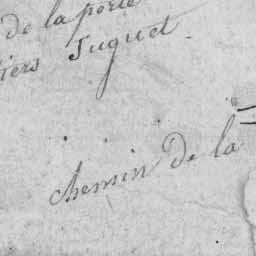 de la porte
iers Juquet.
chemin de la